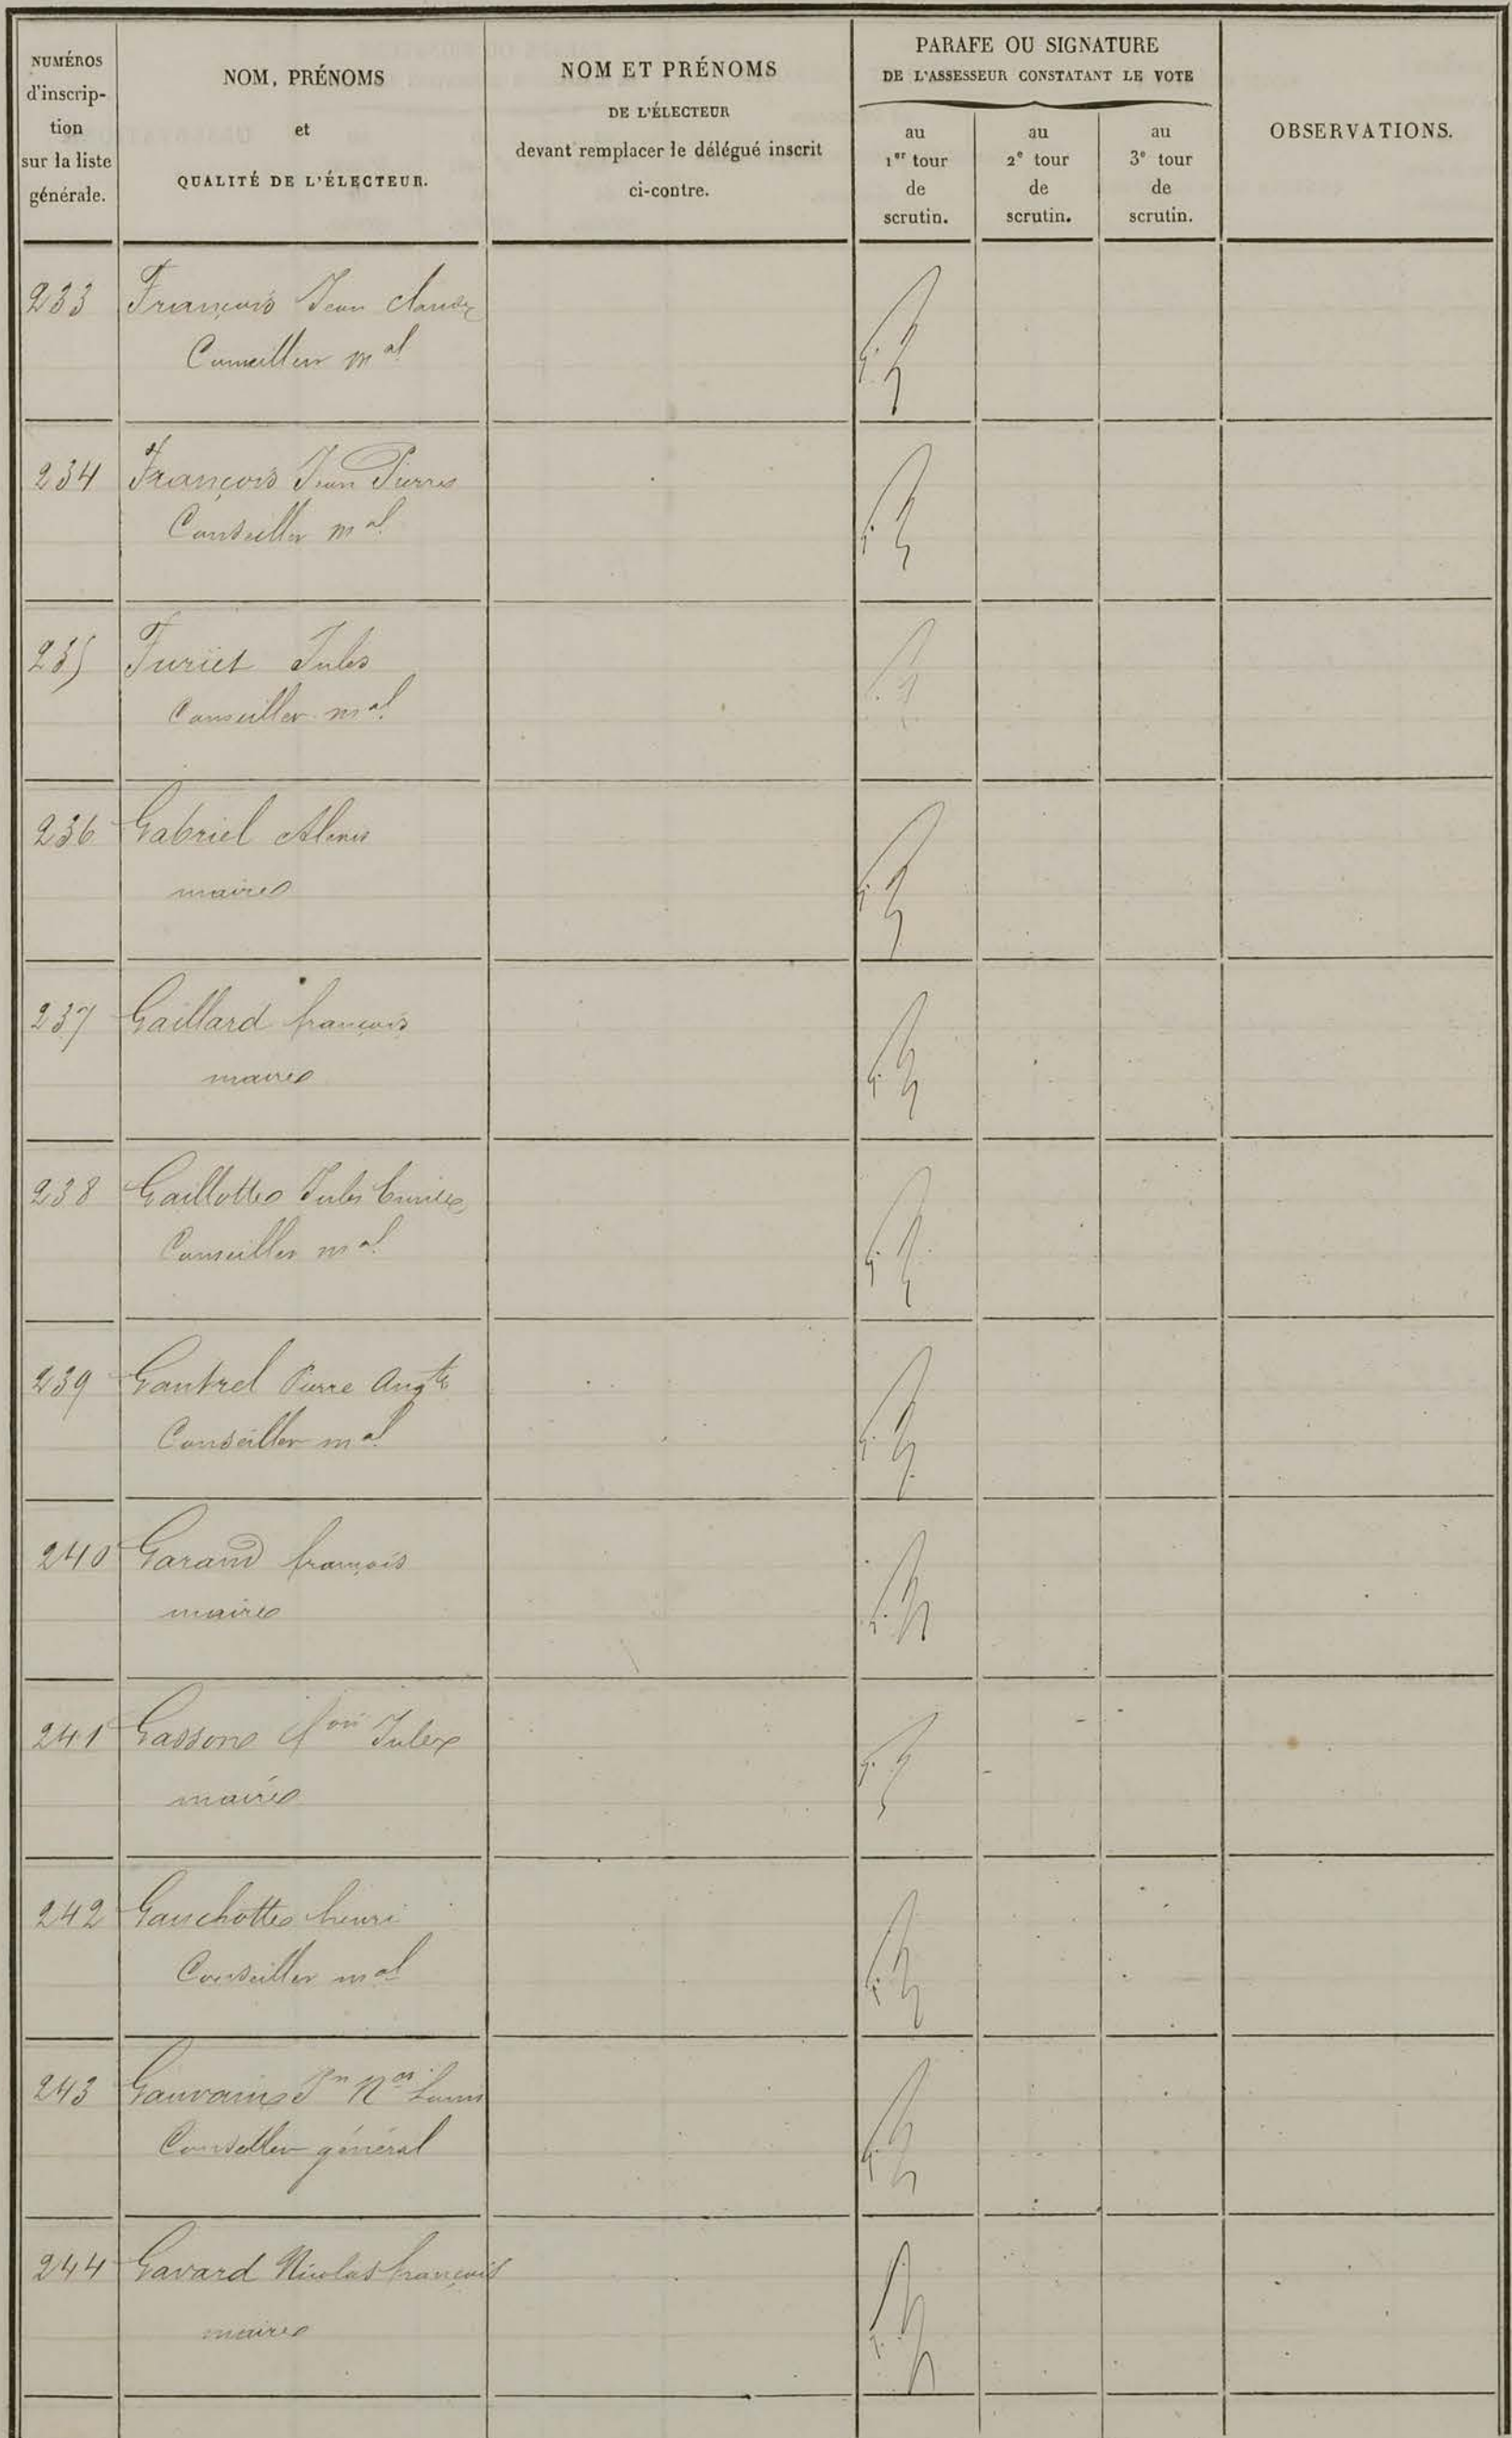 NUMÉROS
d'inscrip-
tion
sur la liste
générale.
NOM, PRÉNOMS
et
QUALITÉ DE L'ÉLECTEUR.
NOM ET PRÉNOMS
DE L'ÉLECTEUR
devant remplacer le délégué inscrit
ci-contre.
PARAFE OU SIGNATURE
DE L'ASSESSEUR CONSTATANT LE VOTE
au
1er tour
de
scrutin.
au
2e tour
de
scrutin.
au
3e tour
de
scrutin.
OBSERVATIONS.
233 François Jean Claude
Conseiller mal
234 François Jean Pierre
Conseiller mal
235 Furiet Jules
Conseiller mal
236 Gabriel Alexis
maire
237 Gaillard françois
maire
238 Gaillotte Jules
Conseiller mal
239 Gautrel Pierre Augte
Conseiller mal
240 Garand françois
maire
241 Gasson Jules
maire
242 Gauchotte henri
Conseiller mal
243 Gauvain Jn Nas Louis
Conseiller général
244 Gavard Nicolas françois
maire